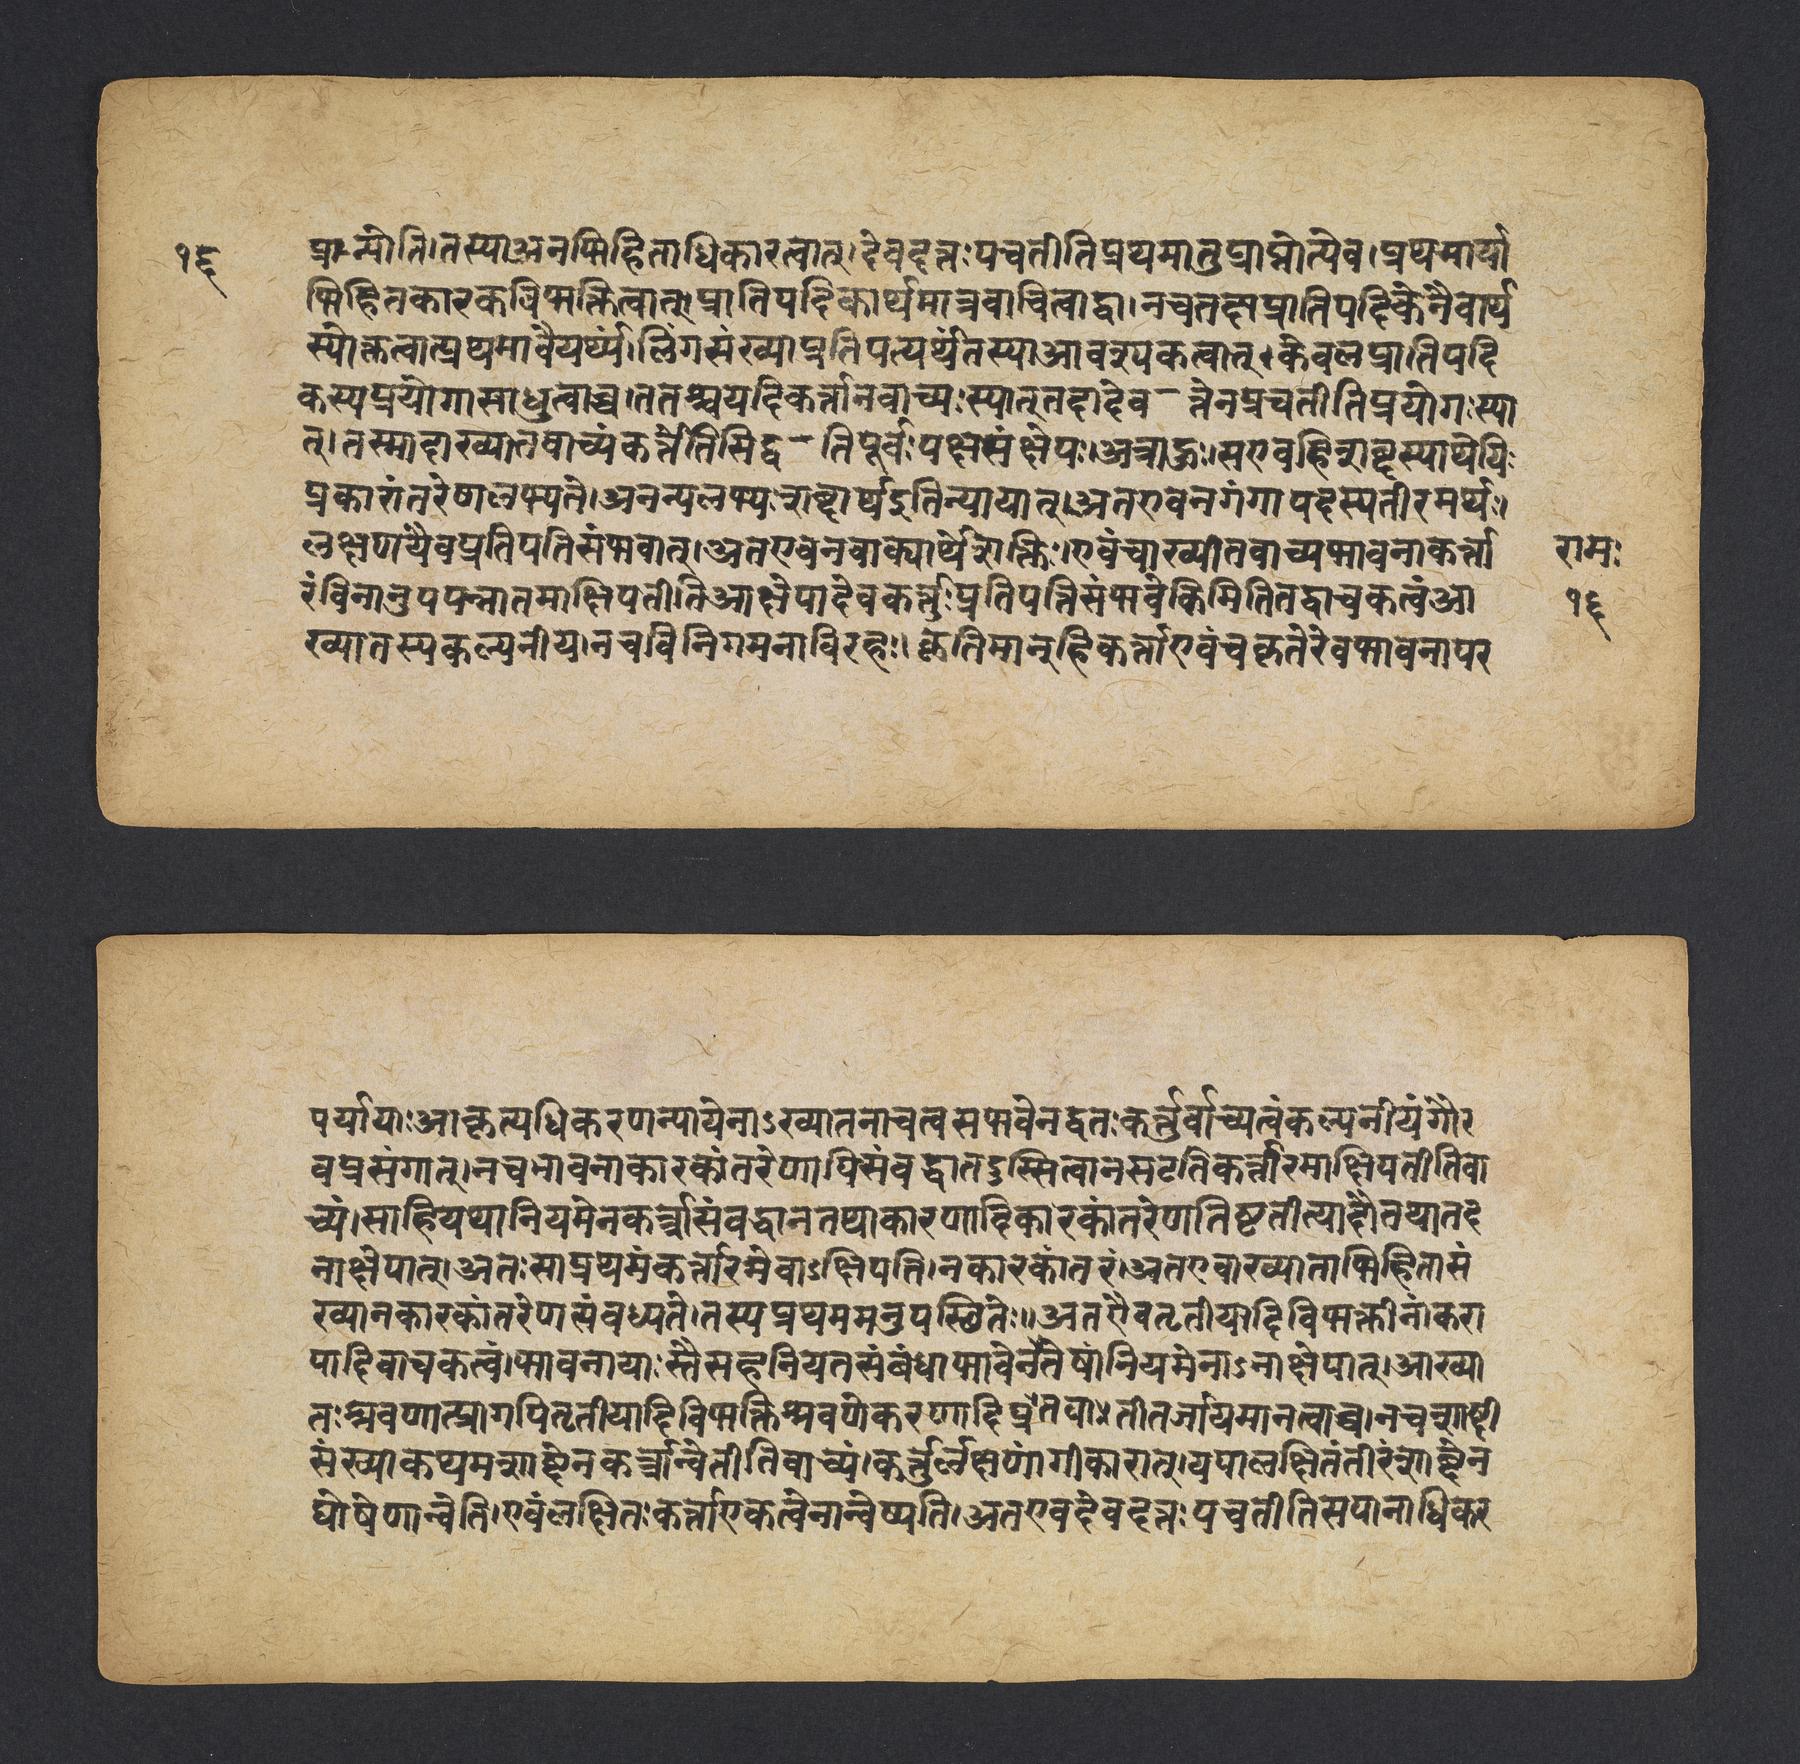 १६
प्राप्नोति।तस्याअनभिहिताधिकारत्वात्।देवदत्तःपचतीतिप्रथमातुप्राप्नोत्येव।प्रथमार्या
भिहितकारकविभक्तित्वात्।प्रातिपदिकार्थमात्रवाचित्वाद्वा।नचतदाप्रातिपदिकेनैवार्थ
स्योक्तत्वात्प्रथमावैयर्थ्यं।लिंगसंख्याप्रतिपत्यर्थंतस्याआवश्यकत्वात्।केवलप्रातिपदि
कस्यप्रयोगासाधुत्वाच्च।ततश्चयदिकर्त्तानवाच्यःस्यात्तदादेव-त्तेनप्रचतीतिप्रयोगःस्या
त्।तस्मादाख्यातवाच्यंकर्त्तेतिसिद्व-तिपूर्वःपक्षसंक्षेपः।अत्राहुः।सएवहिशब्दस्यार्थोयः
प्रकारांतरेणालभ्यते।अनन्यलभ्यःशब्दार्थइतिन्यायात्।अतएवनगंगापदस्यतीरमर्थः।
लक्षणयैवप्रतिपतिसंभवात्।अतएवनवाक्यार्थेशक्तिः।एवंचाख्यातवाच्यभावनाकर्त्ता
रामः
रंविनानुपपन्नातमाक्षिपतीतिआक्षेपादेवकर्त्तुःप्रतिपत्तिसंभवेकिमितितद्वाचकत्वंआ
१६
ख्यातस्यकल्पनीय।नचविनिगमनाविरहः।कृतिमान्हिकर्त्ताएवंचकृतेरेवभावनापर
पर्यायाःआकृत्यधिकरणन्यायेनाऽख्यातनाचत्वसभवेनद्वतःकर्त्तुर्वाच्यत्वंकल्पनीयंगौर
वप्रसंगात्।नचभावनाकारकांतरेणापिसंवद्वातइस्सित्वानसटतिकर्त्तारमाक्षिपतीतिवा
च्यं।साहियथानियमेनकर्त्त्रासंवद्वानतथाकारणादिकारकांतरेणतिष्टतीत्यादौतयातद
नाक्षेपात्।अतःसाप्रथमंकर्त्तारमेवाऽक्षिपति।नकारकांतरं।अतएवाख्याताभिहितासं
ख्यानकारकांतरेणसंवध्यते।तस्यप्रथममनुपस्थितेः॥अतएैवतृतीयादिविभक्तीनांकरा
पादिवाचकत्वं।भावनायाःस्तैसहनियतसंबंधाभावेनतेषांनियमेनाऽनाक्षेपात्।आख्या
तःश्रवणात्प्रागपितृतीयादिविभक्तिश्रवणेकरणादिप्रतपाऽतीतर्जायमानत्वाच्च।नचशाब्दी
संख्याकथमशाब्देनकर्त्त्रान्वेतीतिवाच्यं।कर्त्तुर्लक्षणांगीकारात्।यपालक्षितंतीरंशाब्देन
घोषेणान्वेति।एवंलक्षितःकर्त्ताएकत्वेनान्वेष्यति।अतएवदेवदत्तःपचतीतिसपानाधिकर